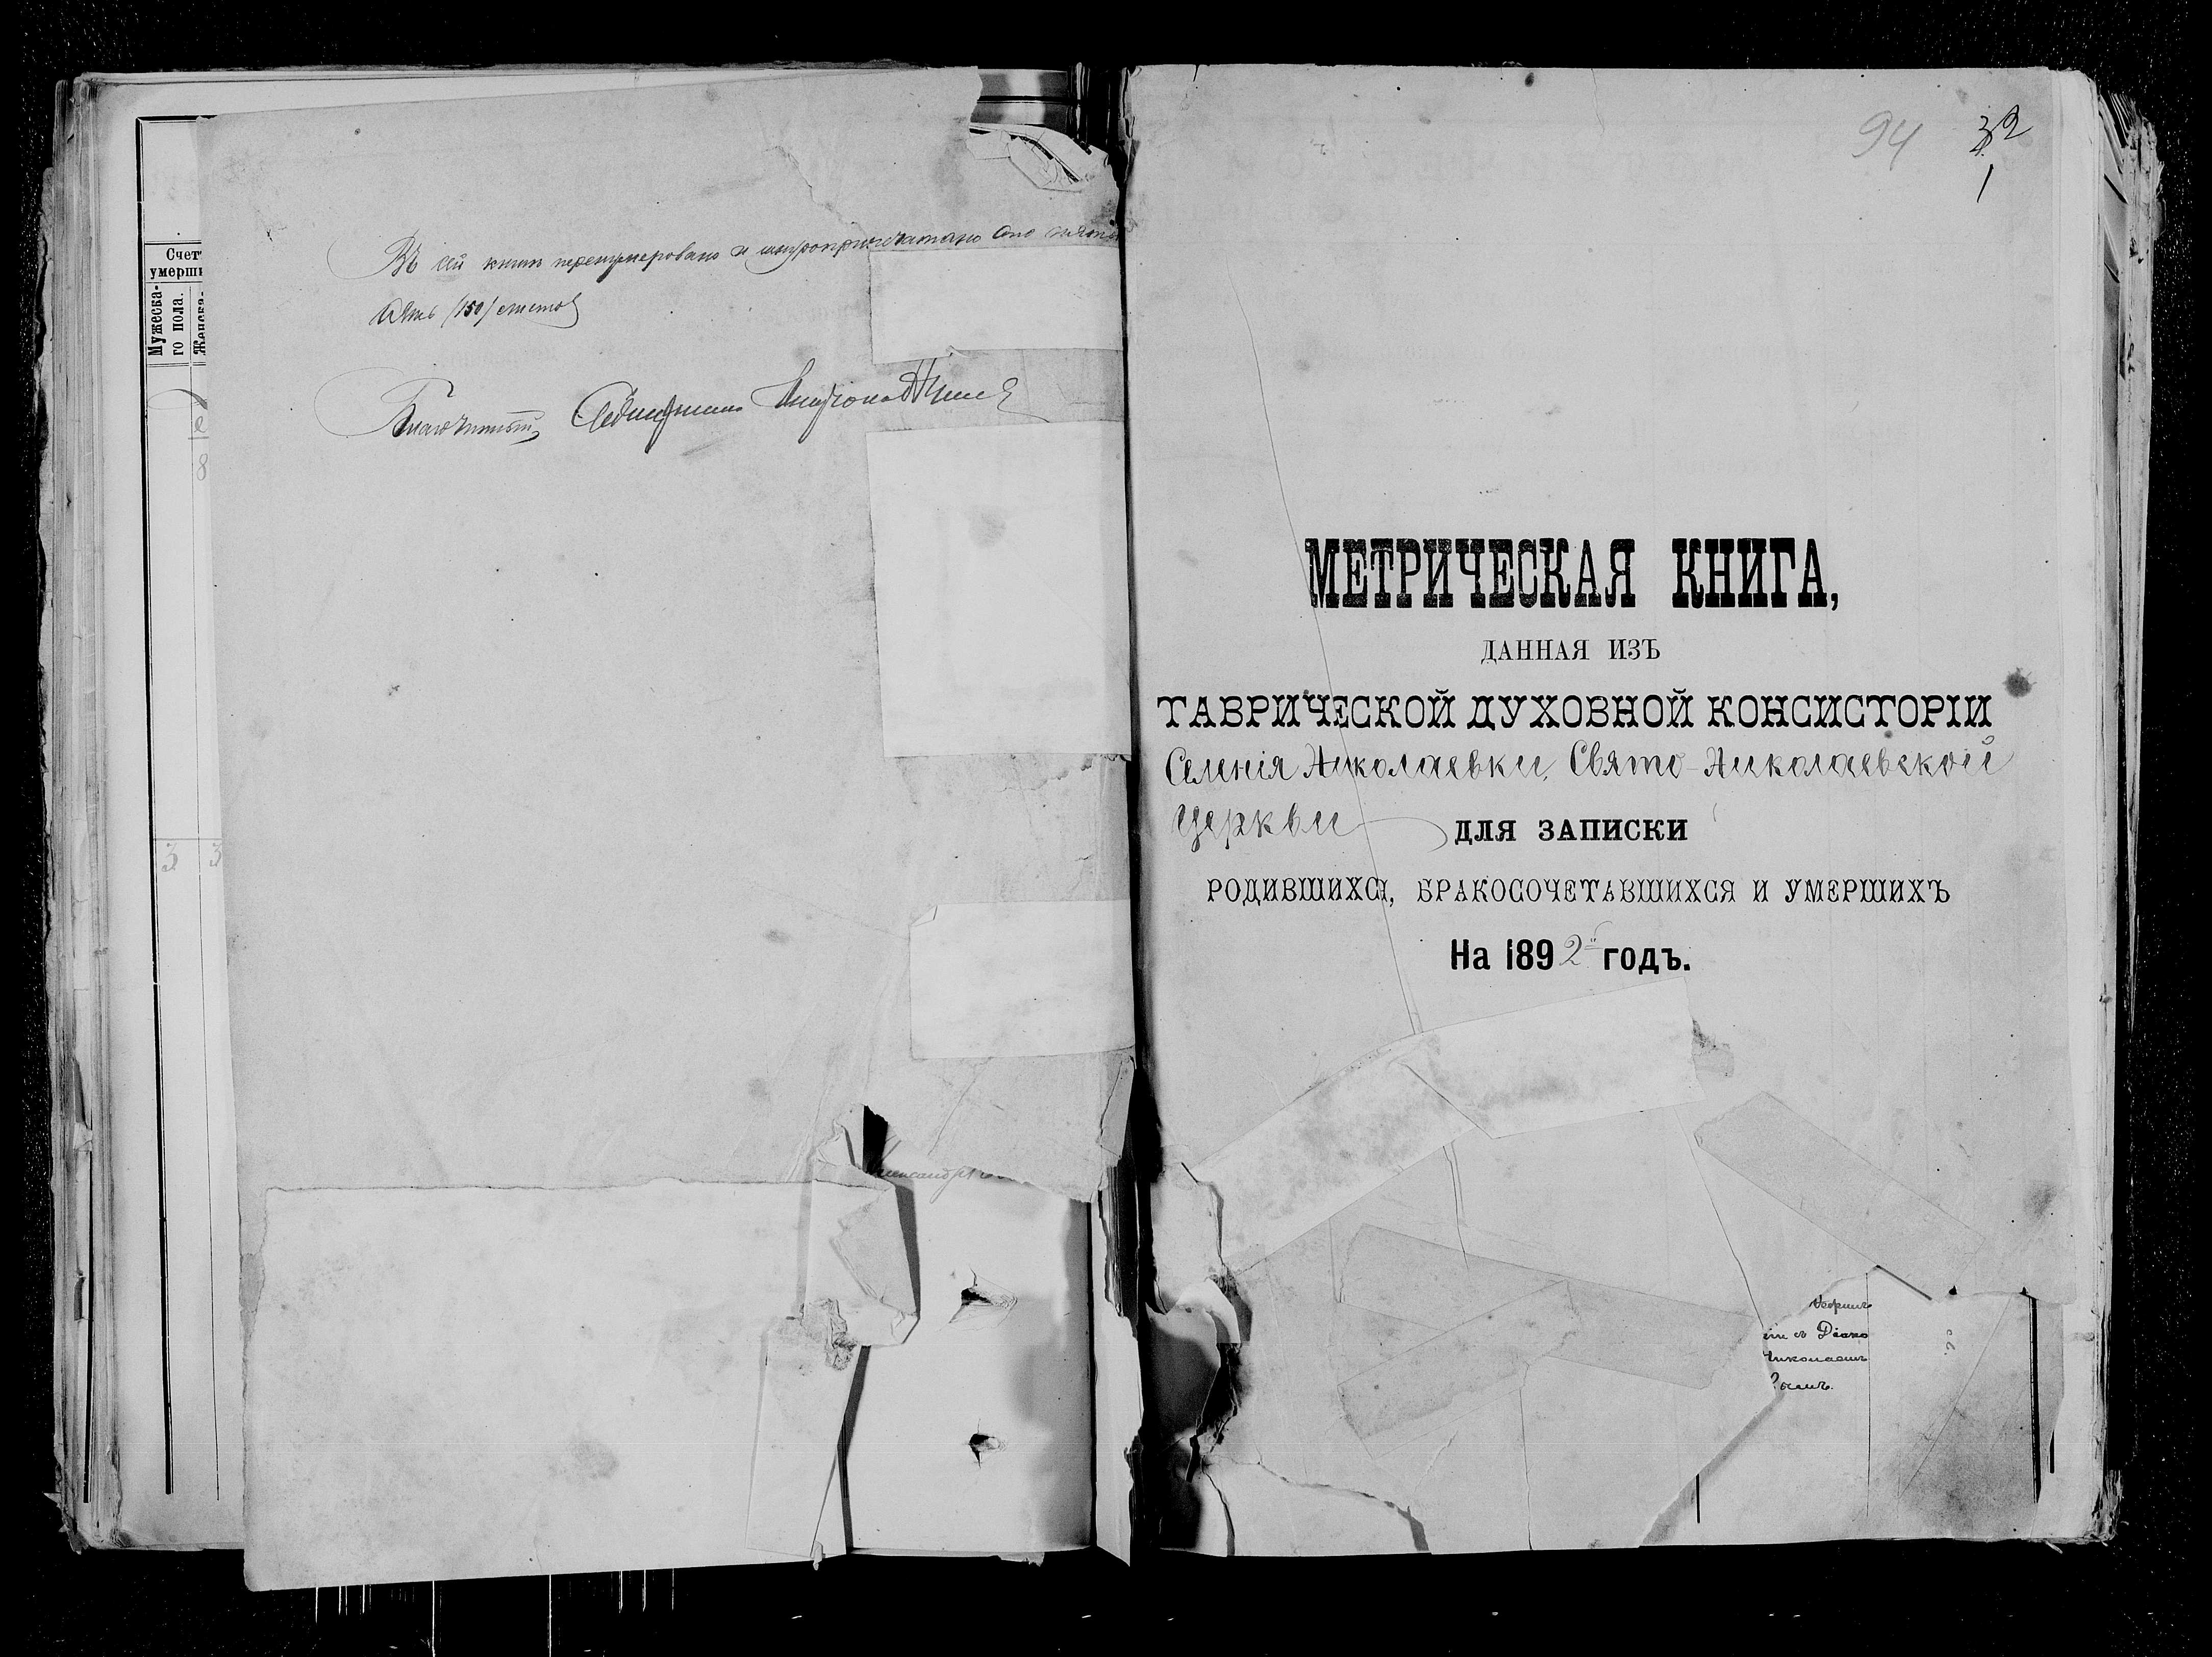 Счет
умерш
Мужеска-
го пола.
Женска-
8
3 3
Въ сей книге перенумеровано и шнуропричетано сто пять
десять /150/ листов
Благочинный Священник
94 32
1
МЕТРИЧЕСКАЯ КНИГА,
ДАННАЯ ИЗЪ
ТАВРИЧЕСКОЙ ДУХОВНОЙ КОНСИСТОРІИ
Селенія Николаевки, Свято-Николаевской
Церкви ДЛЯ ЗАПИСКИ
РОДИВШИХСЯ, БРАКОСОЧЕТАВШИХСЯ И УМЕРШИХЪ
На 1892й годъ.
съ Діако
Николаемъ